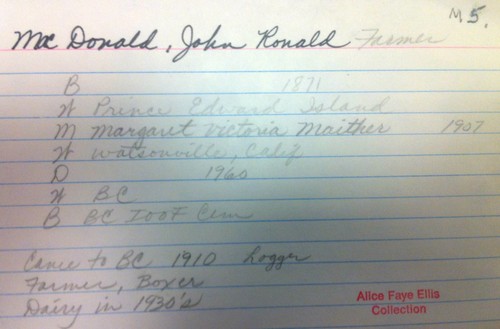 M5.
Mc Donald, John Ronald Farmer
B 1871
W Prince Edward Island
M Margaret Victoria Maither 1907
W Watsonville, Calif
D 1960
W BC
B BC IOOF Cem
Came to BC 1910 Logger
Farmer, Boxer
Dairy in 1930's
Alice Faye Ellis
Collection